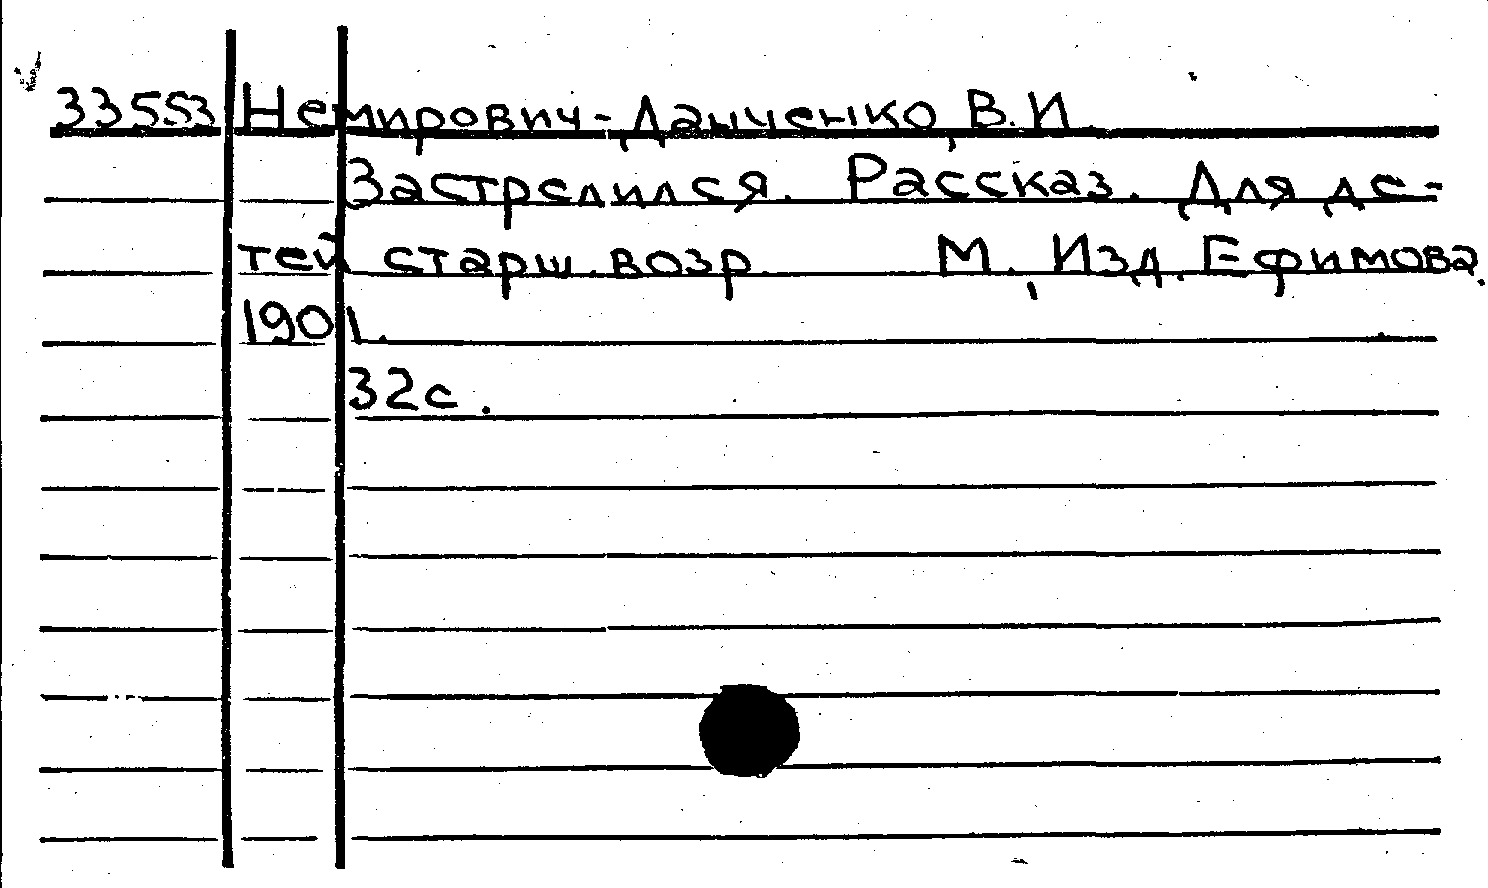 33553 Немирович-Данченко, В.И.
Застрелился. Рассказ. Для де-
тей старш. возр. М., Изд. Ефимова.
1901.
32с.